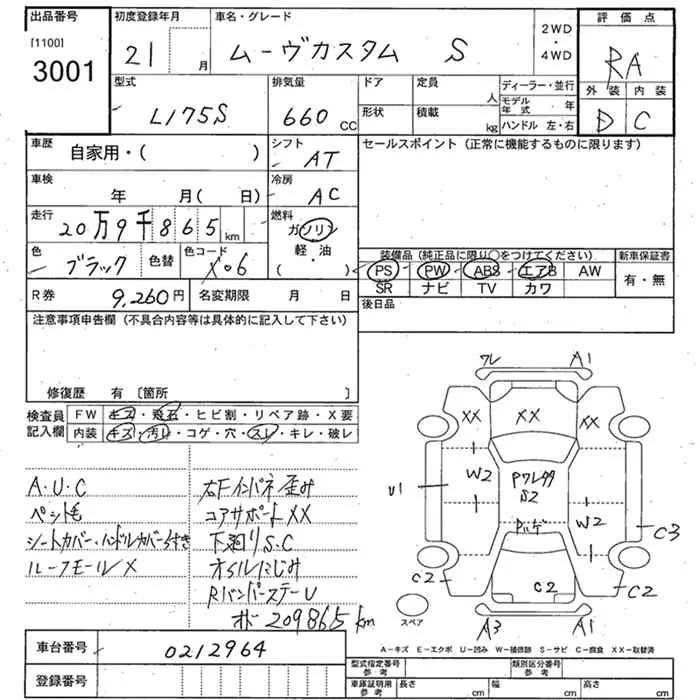 出品番号
[1100]
3001
初度登録年月
21 月
車名・グレード
ムーヴカスタム S
2WD
・
4WD
評価点
RA
外装 内装
D C
型式
L175S
排気量
660 CC
ドア
形状
定員 人
積載 kg
ディーラー・並行
モデル年式 年
ハンドル 左・右
車歴
自家用・( )
シフト
AT
セールスポイント (正常に機能するものに限ります)
車検
年 月(日)
冷房
AC
走行
20万9千865 km
燃料
ガソリン
軽・油
( )
色
ブラック
色替
色コード
X06
装備品 (純正品に限り○をつけてください)
PS PW ABS エアB AW
SR ナビ TV カワ
新車保証書
有・無
R券
9,260円
名変期限 月 日
後日品
注意事項申告欄 (不具合内容等は具体的に記入して下さい)
修復歴 有 〔箇所 〕
検査員記入欄
FW キズ・飛石・ヒビ割・リペア跡・X要
内装 キズ・汚れ・コゲ・穴・スレ・キレ・破レ
A・U・C
ペット毛
シートカバー・ハンドルカバー付き
ルーフモールX
右Fインパネ歪み
コアサポートXX
下廻りS.C
オイルにじみ
RバンパーステーU
オド 209865 km
ワレ A1
XX XX XX
W2 PワレタタS2
U1 W2
Pハゲ
C3
C2 C2 C2
A3 A1
スペア
A-キズ E-エクボ U-凹み W-補修跡 S-サビ C-腐食 XX-取替済
車台番号
0212964
登録番号
型式指定番号
参考
類別区分番号
参考
車庫証明用
参考
長さ cm
幅 cm
高さ cm